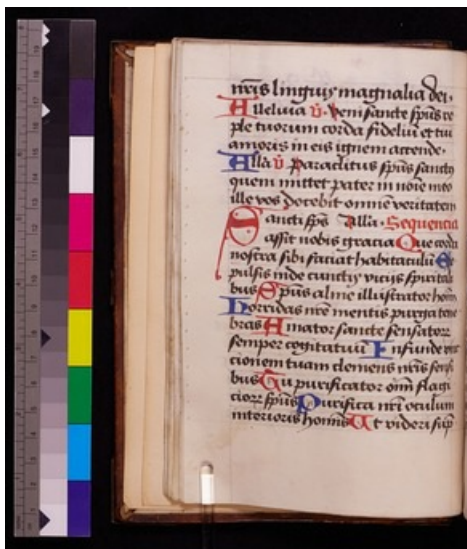 nr̄is linguis magnalia dei.
Alleluia v̄. Veni sancte sp̄us re
ple tuorum corda fideliū et tui
amoris in eis ignem accende.
Alla v̄ Paraclitus sp̄us sanctꝰ
quem mittet pater in noīe meo
ille vos docebit omnē veritatem
Sancti sp̄s Alla. Sequencia
assit nobis gracia Que corda
nostra sibi faciat habitaculū Ex
pulsis inde cunctis vicijs spirital
bus Sp̄us alme illustrator hoīm
Horridas nr̄e mentis purga tene
bras Amator sancte sensatoꝝ
semper cogitatuū Infunde
cionem tuam clemens nr̄is sensi
bus Tu purificator om̄ flagi
cioꝝ sp̄us Purifica nr̄i oculum
interioris homīs Ut videri sup̄